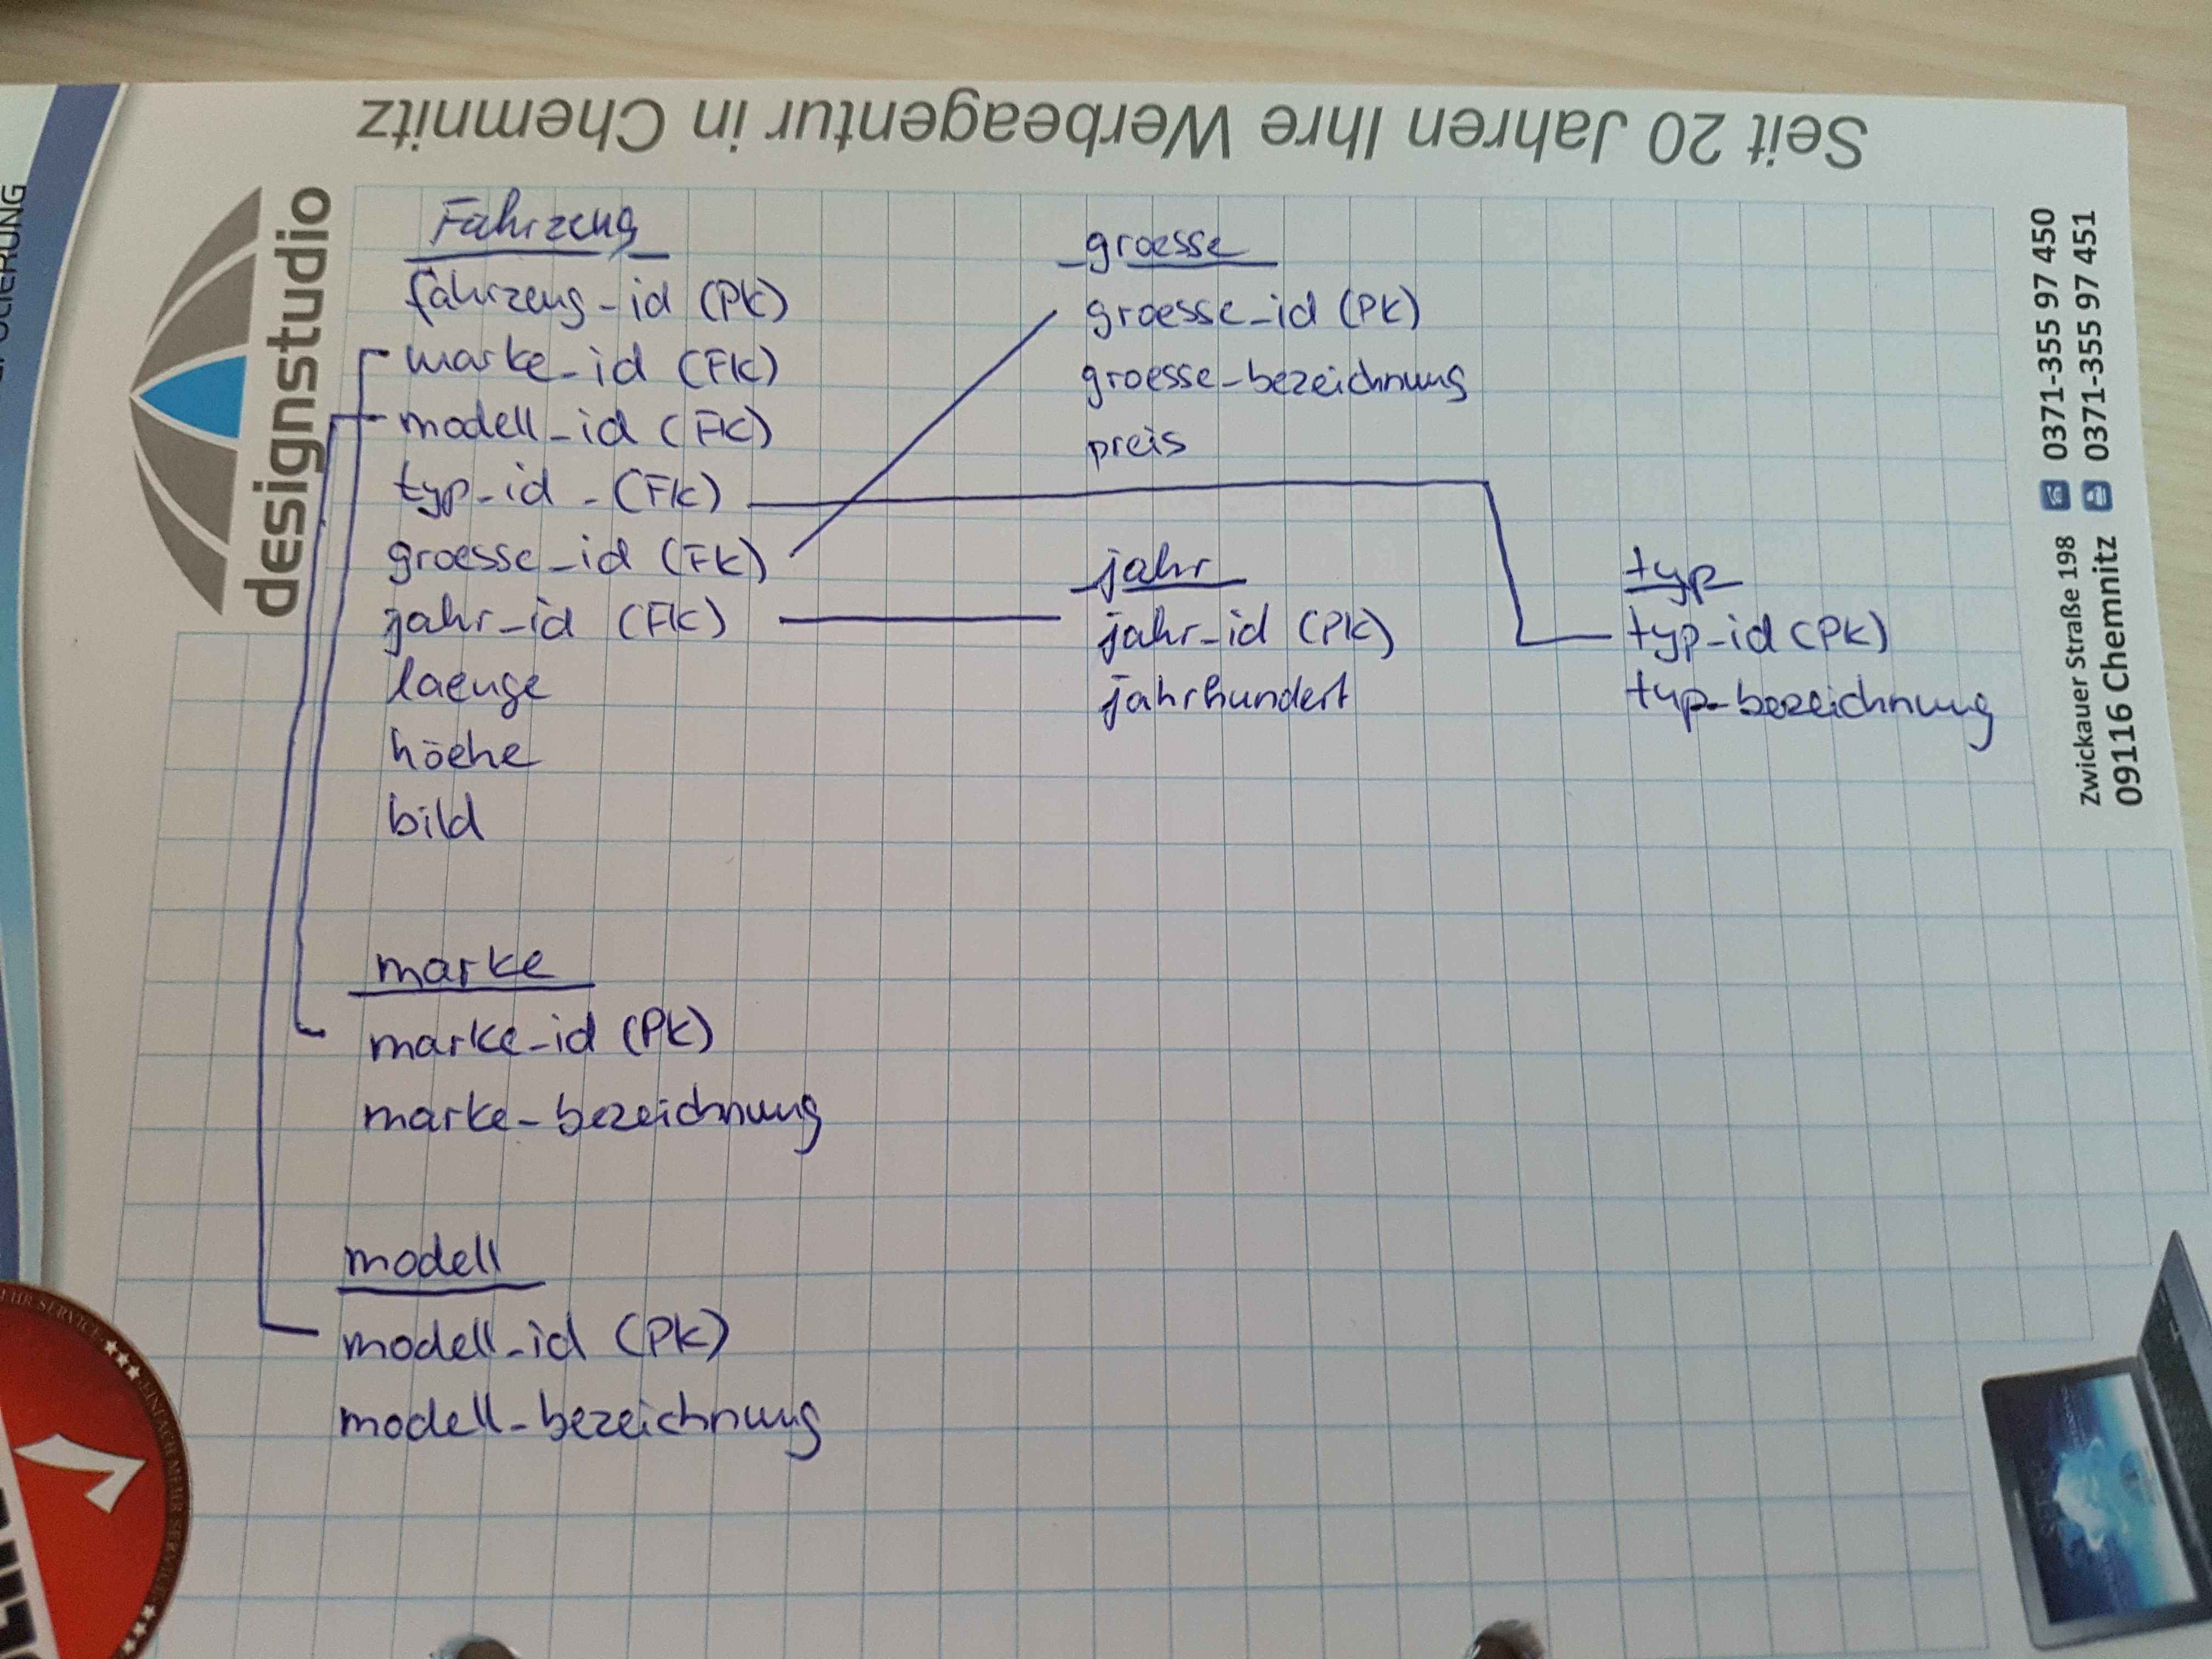 Seit 20 Jahren Ihre Werbeagentur in Chemnitz
designstudio
Fahrzeug
fahrzeug_id (PK)
marke_id (FK)
modell_id (FK)
typ_id - (FK)
groesse_id (FK)
jahr_id (FK)
laenge
höehe
bild
groesse
groesse_id (PK)
groesse_bezeichnung
preis
jahr
jahr_id (PK)
jahrhundert
typ
typ_id (PK)
typ_bezeichnung
marke
marke_id (PK)
marke_bezeichnung
modell
modell_id (PK)
modell_bezeichnung
Zwickauer Straße 198 0371-355 97 450
09116 Chemnitz 0371-355 97 451
EINFACH MEHR SERVICE